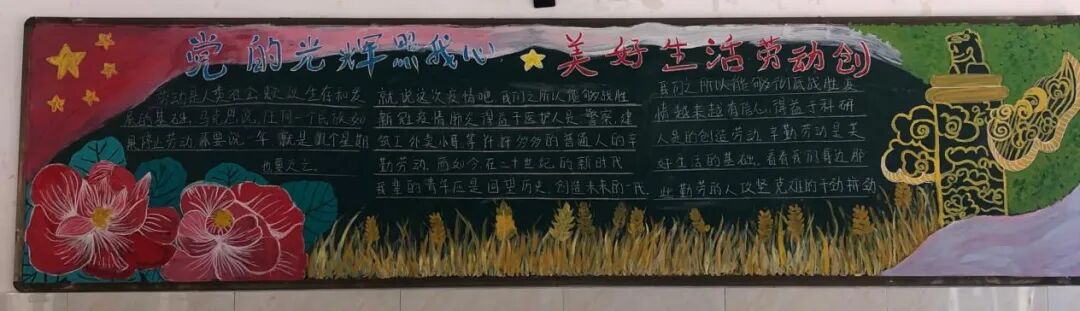 党的光辉照我心
美好生活劳动创
劳动是人类社会 生存和发
展的基础，马克思说，任何一个民族如
果停止劳动 不要说一年 就是几个星期
也要灭亡。
就说这次疫情吧，我们之所以能够战胜
新冠疫情肺炎得益于医护人员 警察，建
筑工 外卖小哥等 的普通人的辛
勤劳动，而如今，在二十世纪的新时代
我辈的青年应是回望历史，创造未来的一代。
我们之所以能够彻底战胜疫
情越来越有信心，得益于科研
人员的创造劳动，辛勤劳动是美
好生活的基础。看看我们身边那
些勤劳的人攻坚克难的干劲